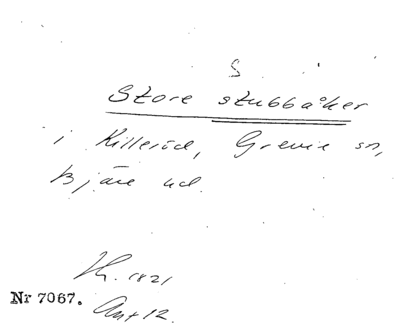 S
Store stubbåker
i Killeröd, Grevie sn,
Bjäre hd.
1821
Nr 7067.
Ant 12.